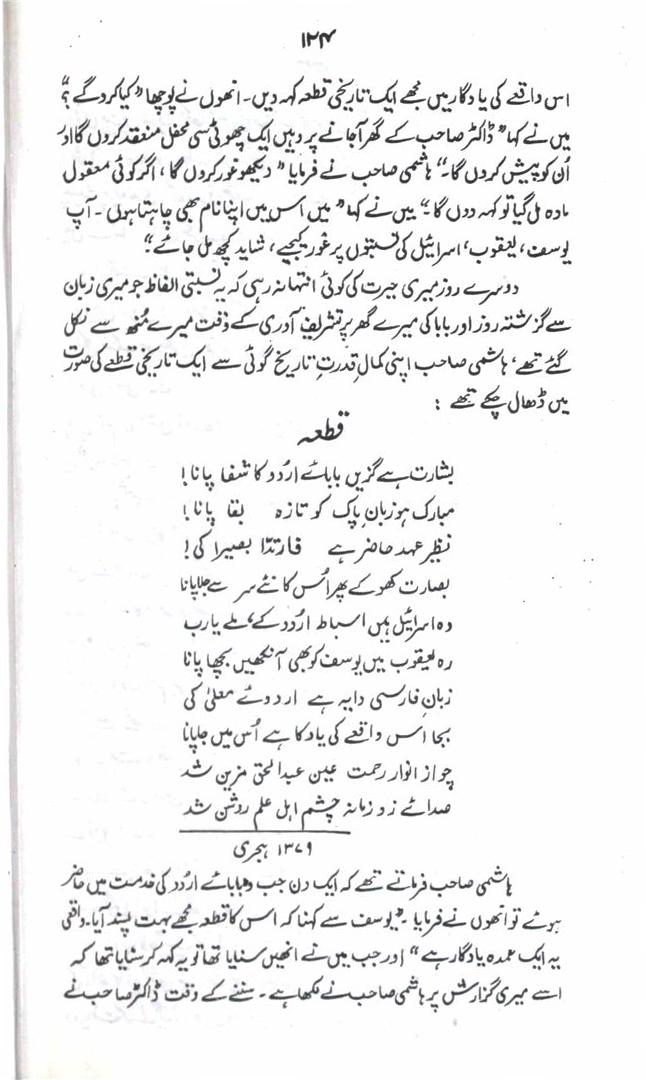 ۱۲۴
اس واقعے کی یادگار میں مجھے ایک تاریخی قطعہ کہہ دیں۔ انھوں نے پوچھا "کیا کرو گے؟"
میں نے کہا "ڈاکٹر صاحب کے گھر آجانے پر وہیں ایک چھوٹی سی محفل منعقد کروں گا اور
اُن کو پیش کروں گا۔" ہاشمی صاحب نے فرمایا "دیکھو غور کروں گا، اگر کوئی معقول
مادہ مل گیا تو کہہ دوں گا۔" میں نے کہا "میں اس میں اپنا نام بھی چاہتا ہوں۔ آپ
یوسف، یعقوب، اسرائیل کی نسبتوں پر غور کیجیے، شاید کچھ مل جائے۔"
دوسرے روز میری حیرت کی کوئی انتہا نہ رہی کہ یہ نسبتی الفاظ جو میری زبان
سے گزشتہ روز اور بابا کی میرے گھر پر تشریف آوری کے وقت میرے منھ سے نکل
گئے تھے، ہاشمی صاحب اپنی کمالِ قدرتِ تاریخ گوئی سے ایک تاریخی قطعے کی صورت
میں ڈھال چکے تھے :
قطعہ
بشارت ہے گزیں بابائے اردو کا شفا پانا!
مبارک ہو زبانِ پاک کو تازہ بقا پانا!
نظیر عہد حاضر ہے فارتدّا بصیرا کی!
بصارت کھو کے پھر اُس کا نئے سر سے جلا پانا
وہ اسرائیل ہیں اسباط اردو کے، ملے یارب
رہ یعقوب میں یوسف کو بھی آنکھیں بچھا پانا
زبانِ فارسی دایہ ہے اردوئے معلیٰ کی
بجا اس واقعے کی یاد کا ہے اُس میں جا پانا
چو از انوار رحمت عین عبدالحق مزین شد
صدائے زد زمانہ چشم اہل علم روشن شد
۱۳۷۹ ہجری
ہاشمی صاحب فرماتے تھے کہ ایک دن جب وہ بابائے اردو کی خدمت میں حاضر
ہوئے تو انھوں نے فرمایا۔ "یوسف سے کہنا کہ اس کا قطعہ مجھے بہت پسند آیا۔ واقعی
یہ ایک عمدہ یادگار ہے" اور جب میں نے انھیں سنایا تھا تو یہ کہہ کر سنایا تھا کہ
اسے میری گزارش پر ہاشمی صاحب نے لکھا ہے۔ سننے کے وقت ڈاکٹر صاحب نے